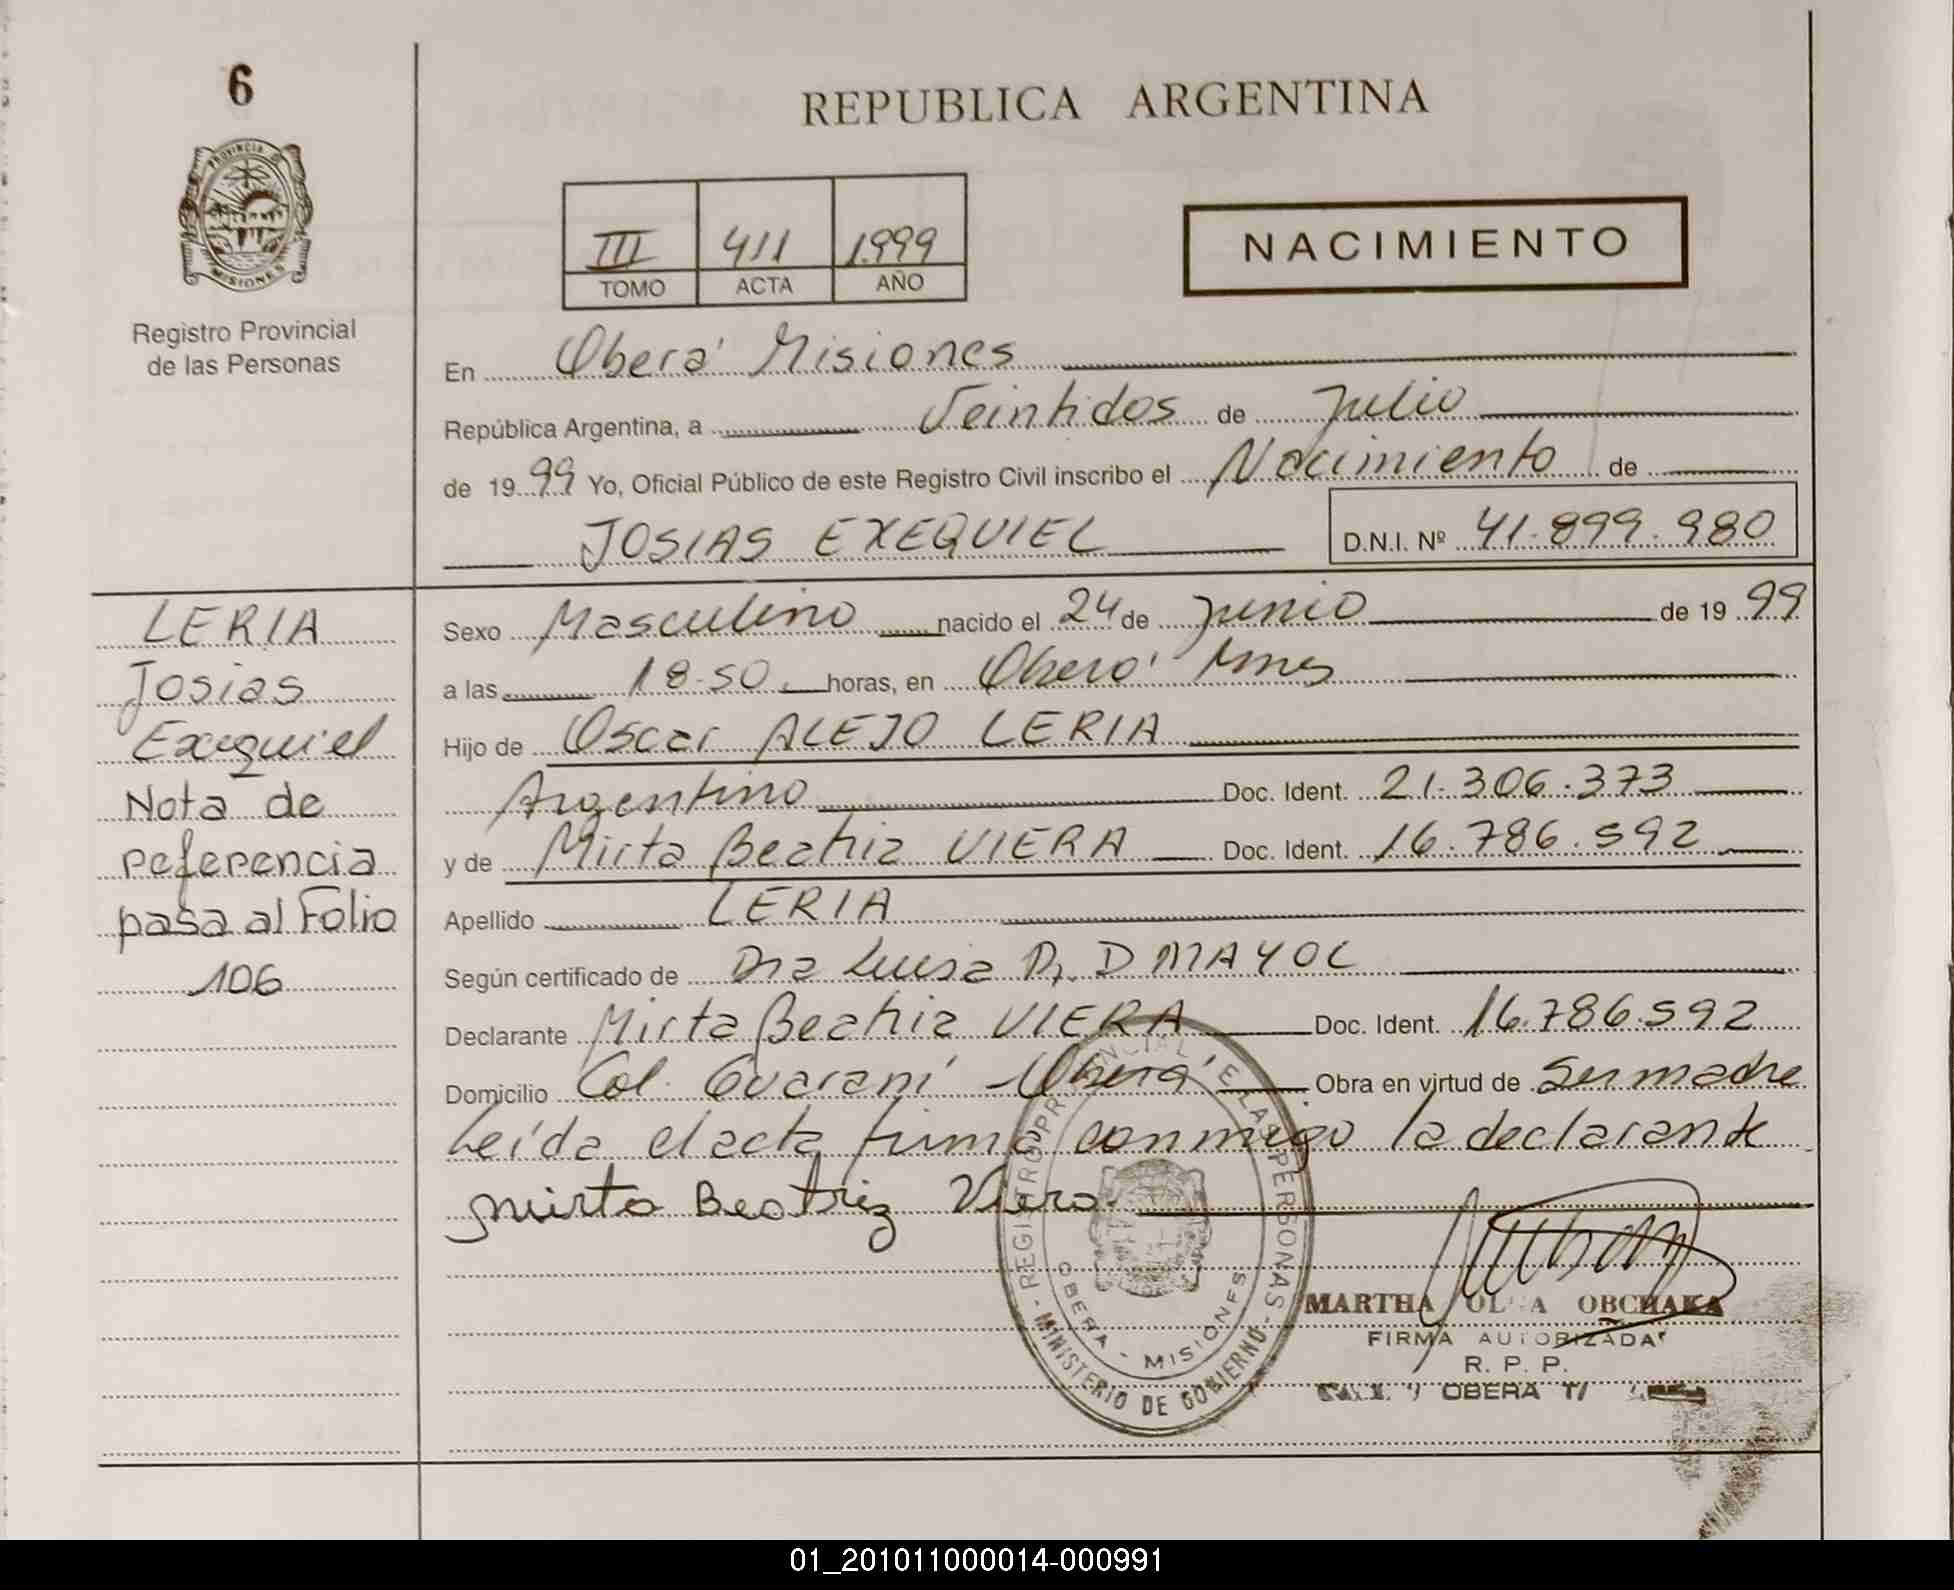 6
REPUBLICA ARGENTINA
PROVINCIA DE
MISIONES
Registro Provincial
de las Personas
III 411 1.999
TOMO ACTA AÑO
NACIMIENTO
En Oberá Misiones
República Argentina, a Veintidos de Julio
de 19 99 Yo, Oficial Público de este Registro Civil inscribo el Nacimiento de
JOSIAS EXEQUIEL D.N.I. Nº 41.899.980
LERIA
Josias
Exequiel
Nota de
referencia
pasa al Folio
106
Sexo Masculino nacido el 24 de Junio de 19 99
a las 18-50 horas, en Oberá Mnes
Hijo de Oscar ALEJO LERIA
Argentino Doc. Ident. 21.306.373
y de Mirta Beatriz VIERA Doc. Ident. 16.786.592
Apellido LERIA
Según certificado de Dra Luisa D MAYOL
Declarante Mirta Beatriz VIERA Doc. Ident. 16.786.592
Domicilio Col. Guaraní Oberá Obra en virtud de Ser madre
Leída el acta firma conmigo la declarante
Mirta Beatriz Viera
REGISTRO PROVINCIAL DE LAS PERSONAS - MINISTERIO DE GOBIERNO -
OBERA - MISIONES
MARTHA OLGA OBCHAKA
FIRMA AUTORIZADA
R. P. P.
OBERA
01_201011000014-000991